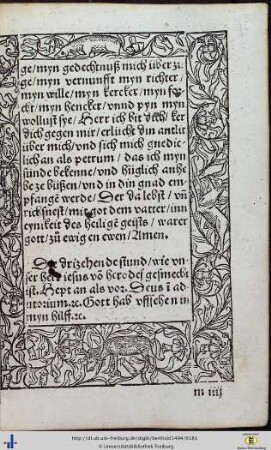 ge/myn gedechtnuß mich über zü
ge/myn vernunfft myn richter/
myn wille/myn kercker/myn sec
ckt/myn hencker/vnnd pyn myn
wollust sye/Herr ich bit dich/ker
dich gegen mir/erlücht din antlit
über mich/vnd sich mich gnedic
lich an als petrum/das ich myn
sünde bekenne/vnd häglich anhe
be ze büßen/vnd in din gnad em
pfangē werde/Der da lebst/vñ
ricksnest/mit got dem vatter/inn
eynikeit des heiligē geists/warer
gott/zü ewig en ewen/Amen.
Die drizehende stund/wie vn
ser her iesus vō herodes gesmecht
ist. Hept an als vor. Deus ī ad
iutorium.⁊c. Gott hab vffsehen in
myn hilff.⁊c.
m iiij
http://dl.ub.uni-freiburg.de/diglit/berthold1494/0181
© Universitätsbibliothek Freiburg